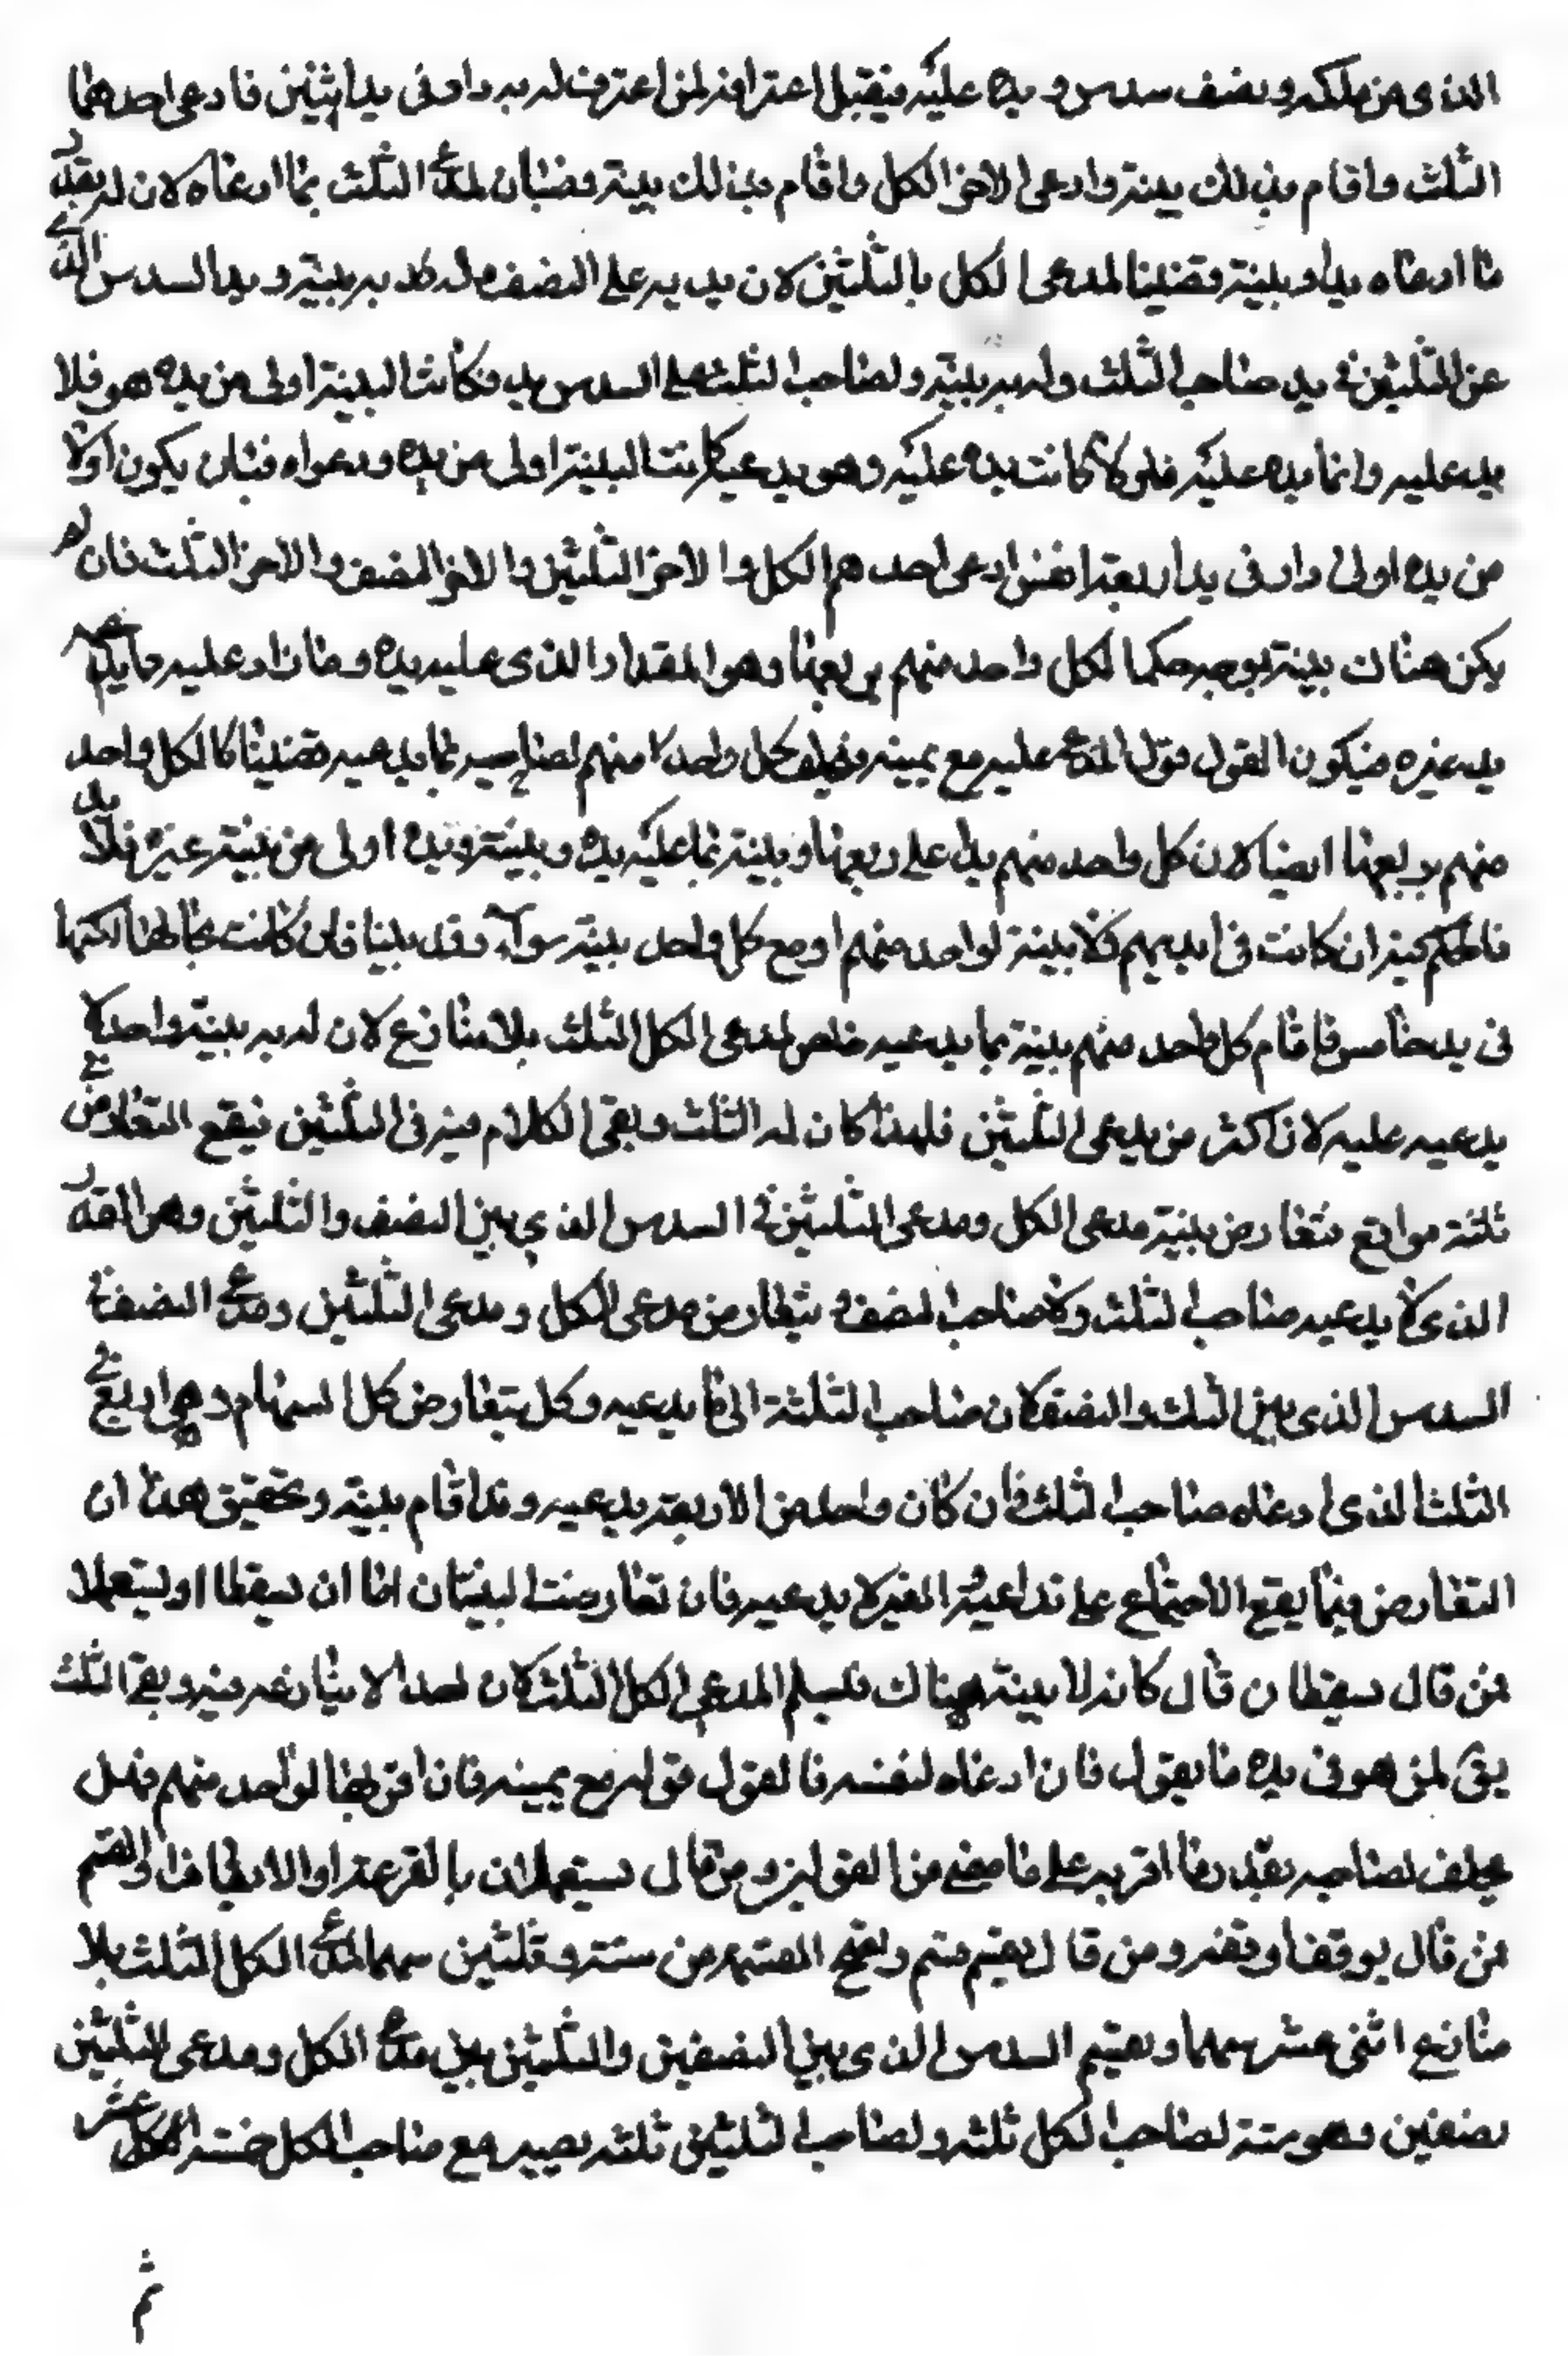 الذى من ملكه ونصف سدس ويده عليه فيقبل اعترافه لمن اعترف له به دار فى يد اثنين فادعى احدهما
الثلث واقام بذلك بينة وادعى الاخر الكل واقام بذلك بينة قضينا لمدعى الثلث بما ادعاه لان له بقدر
ما ادعاه يدا وبينة وقضينا لمدعى الكل بالثلثين لان يديه على النصف وله به بينة ويد السدس الذى
عن الثلثين فى يد صاحب الثلث وله به بينة ولصاحب الثلث على السدس يد فكانت البينة اولى من يده هو فلا
يدعيه وانما يده عليه فلو كانت يده عليه وهو يدعيه كانت البينة اولى من يده ودعواه فبان يكون اولا
من يده اولى دار فى يد اربعة انفس ادعى احدهم الكل والاخر الثلثين والاخر النصف والاخر الثلث فان لم
يكن هناك بينة بوجه حكما لكل واحد منهم بربعها وهو المقدار الذى عليه يده وما زاد عليه مما يدعيه
يد غيره فيكون القول قول المدعى عليه مع يمينه ويحلف كل واحد منهم لصاحبه بما يدعيه قضينا لكل واحد
منهم بربعها ايضا لان كل واحد منهم يدا على ربعها وبينة بما عليه يده وبينته ويده اولى من بينة غيره بلا يد
فالحكم فيه ان كانت فى ايديهم ولا بينة لواحد منهم او مع كل واحد بينة سواء وقد بينا فان كانت بحالها لكنها
فى يد خامس فاقام كل واحد منهم بينة بما يدعيه خلص لمدعى الكل الثلث بلا منازع لان له به بينة واحد لا
يدعيه عليه لان اكثر من يدعى الثلثين فلهذا كان له الثلث وبقى الكلام فيه فى الثلثين فيقع التعارض فى
ثلثة مواقع فتعارض بينة مدعى الكل ومدعى الثلثين فى السدس الذى بين النصف والثلثين وهو القدر
الذى لا يدعيه صاحب الثلث ولا صاحب النصف و تتعارض مدعى الكل ومدعى الثلثين ومدعى النصف فى
السدس الذى بين الثلث والنصف لان صاحب الثلثة الى ما يدعيه وكل يتعارض كل السهام وهى اربع فى
الثلث الذى ادعاه صاحب الثلث فان كان واحد من الاربعة يدعيه وقد اقام بينة وتحقيق هذا ان
التعارض فيما يقع الاجتماع على تداعيه الغير لا يدعيه فان تعارضت البينتان اما ان سقطا او يستعملا
فمن قال سقطا ن قال كانه لا بينة هناك فسلم المدعى الكل الثلث لان احدا لا ينازعه فيه وبقى الثلث
بقى لمن هو فى يده ما يقول فان ادعاه لنفسه فالقول قوله مع يمينه فان اقر بها لواحد منهم فهل
يحلف لصاحبه بقدر ما اقر به على ما مضى من القولين ومن قال يستعملان بالقرعة او الايقاف او القسم
فمن قال يوقف اوقفه ومن قال يقسم قسم وتصح القسمة من ستة وثلثين سهما لمدعى الكل الثلث بلا
منازع اثنى عشر سهما ونقسم السدس الذى بين النصفين والثلثين بين مدعى الكل ومدعى الثلثين
نصفين وهو ستة لصاحب الكل ثلثه ولصاحب الثلثين ثلثه يصير مع صاحب الكل خمسة عشر
ثم